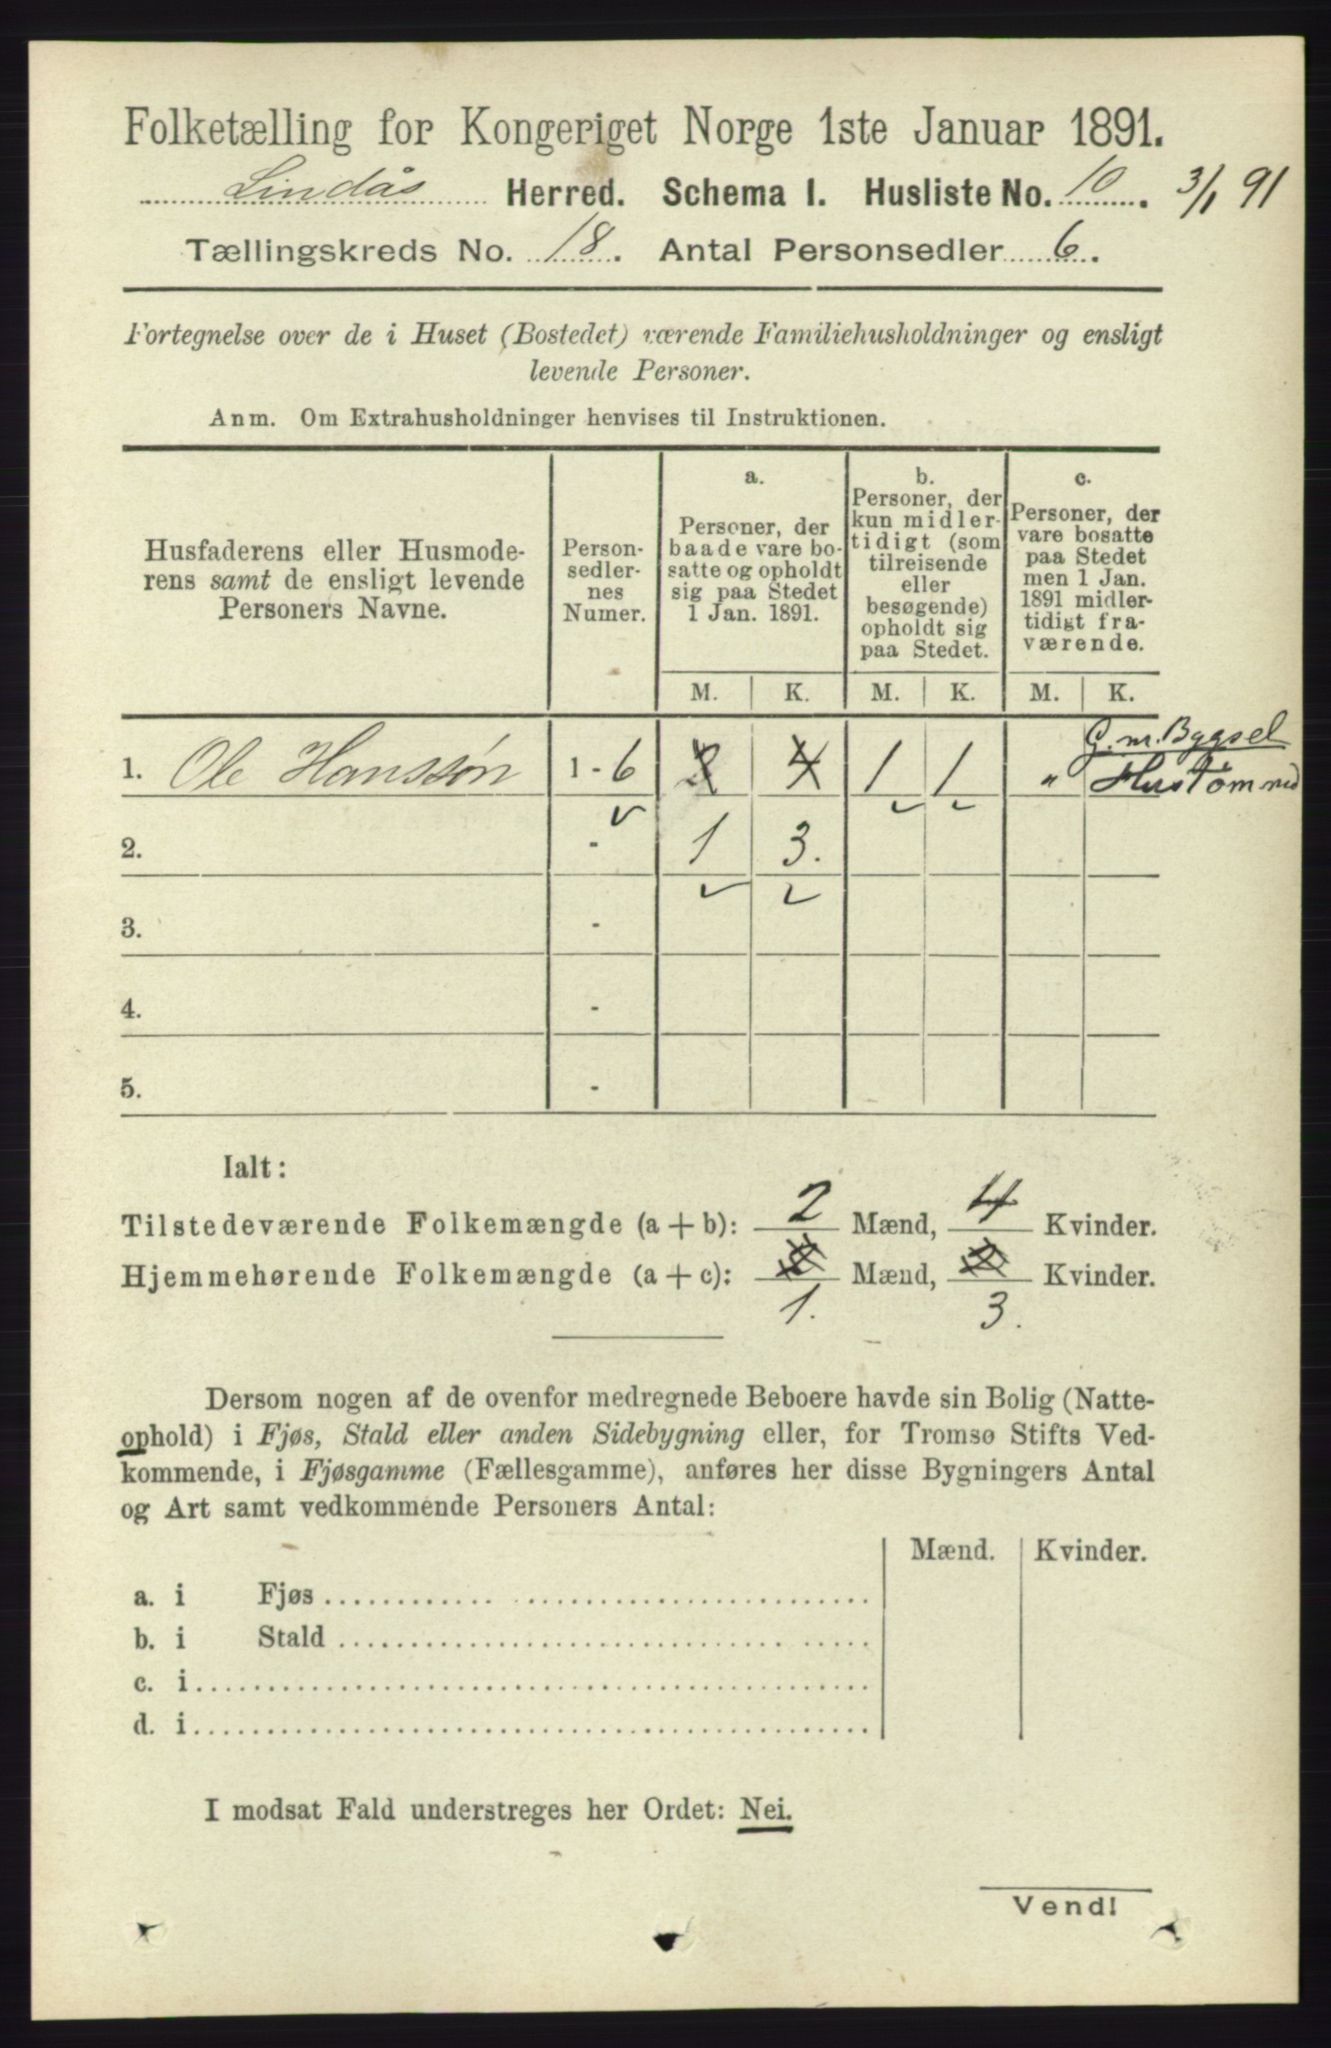 Folketælling for Kongeriget Norge 1ste Januar 1891.
Lindås Herred. Schema 1. Husliste No. 10. 3/1 91
Tællingskreds No. 18. Antal Personsedler 6.
Fortegnelse over de i Huset (Bostedet) værende Familiehusholdninger og ensligt
levende Personer.
Anm. Om Extrahusholdninger henvises til Instruktionen.
Husfaderens eller Husmode-
rens samt de ensligt levende
Personers Navne.
Person-
sedler-
nes
Numer.
a.
Personer, der
baade vare bo-
satte og opholdt
sig paa Stedet
1 Jan. 1891.
b.
Personer, der
kun midler-
tidigt (som
tilreisende
eller
besøgende)
opholdt sig
paa Stedet.
c.
Personer, der
vare bosatte
paa Stedet
men 1 Jan.
1891 midler-
tidigt fra-
værende.
M. K. M. K. M. K.
G. m. Bygsel
1. Ole Hanssøn 1 - 6 2 4 1 1 "
2. - 1 3.
3. -
4. -
5. -
Ialt:
Tilstedeværende Folkemængde (a + b): 2 Mænd, 4 Kvinder.
Hjemmehørende Folkemængde (a + c): 2 Mænd, 2 Kvinder.
1. 3.
Dersom nogen af de ovenfor medregnede Beboere havde sin Bolig (Natte-
ophold) i Fjøs, Stald eller anden Sidebygning eller, for Tromsø Stifts Ved-
kommende, i Fjøsgamme (Fællesgamme), anføres her disse Bygningers Antal
og Art samt vedkommende Personers Antal:
Mænd. Kvinder.
a. i Fjøs
b. i Stald
c. i
d. i
I modsat Fald understreges her Ordet: Nei.
Vend!